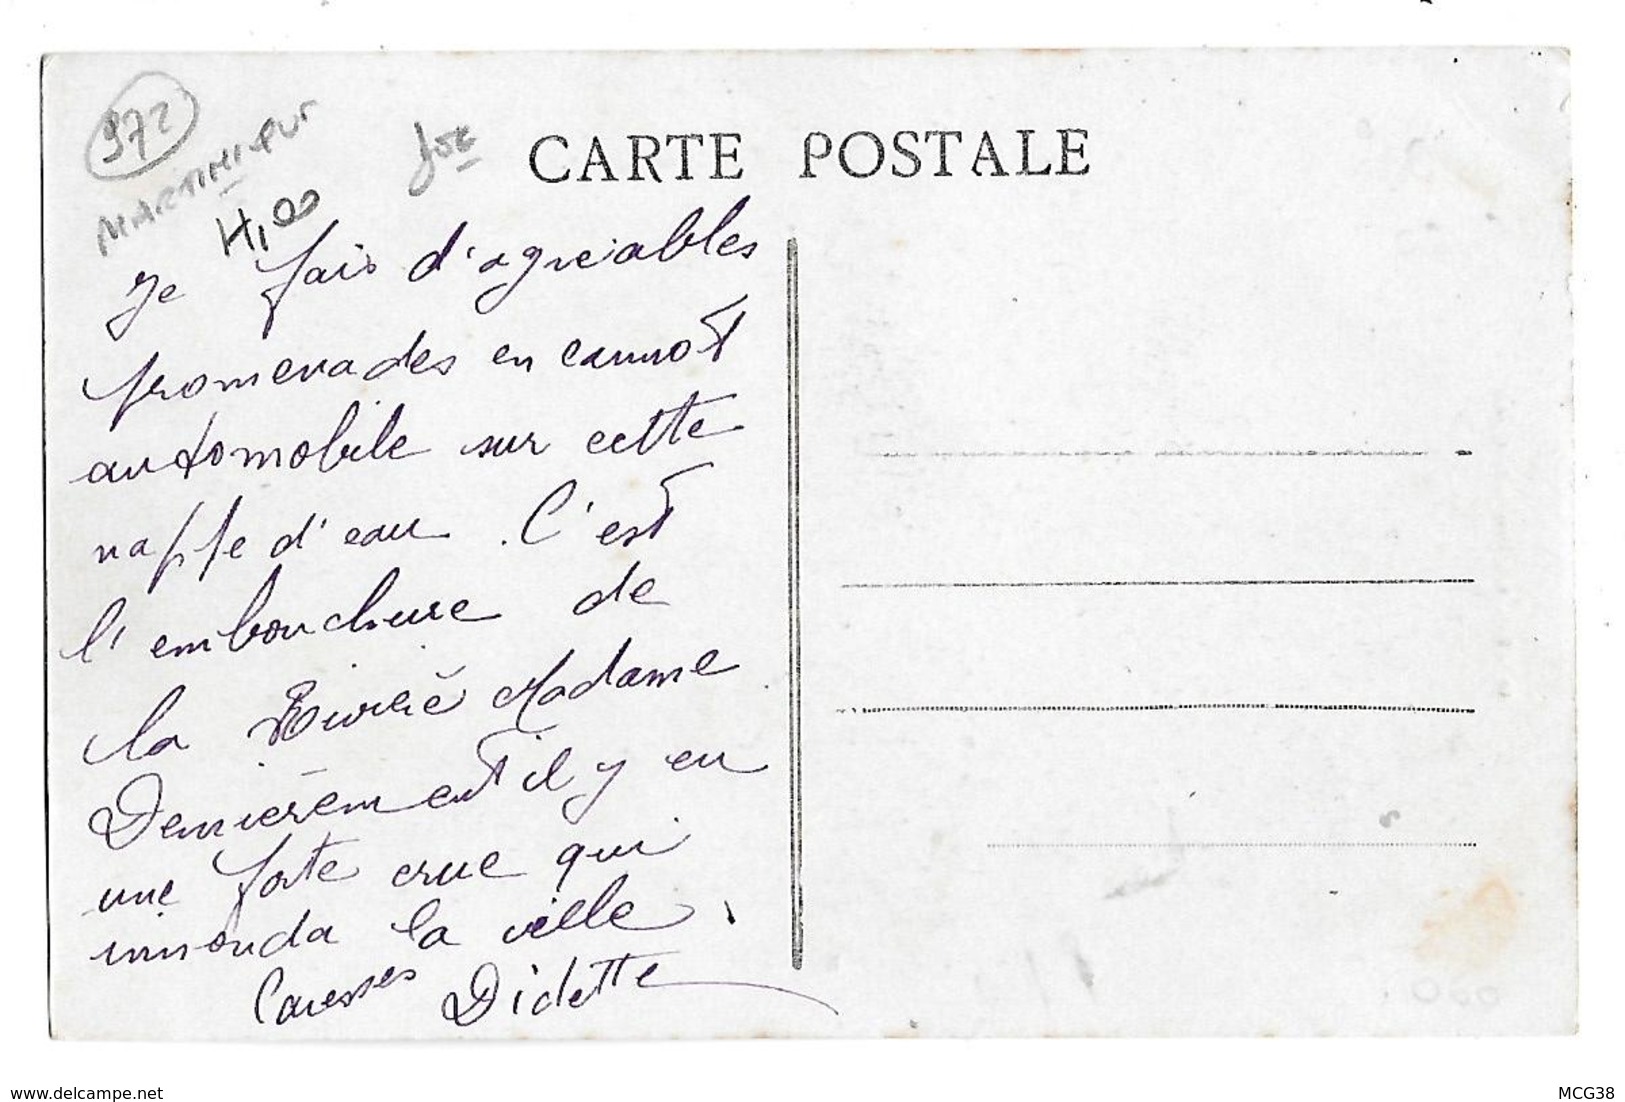 972
MARTINIQUE
CARTE POSTALE
Je fais d'agréables
promenades en cannot
automobile sur cette
nappe d'eau. C'est
l'embouchure de
la Rivière Madame
Dernièrement il y eu
une forte crue qui
innonda la ville.
Caresses Didette
www.delcampe.net
MCG38